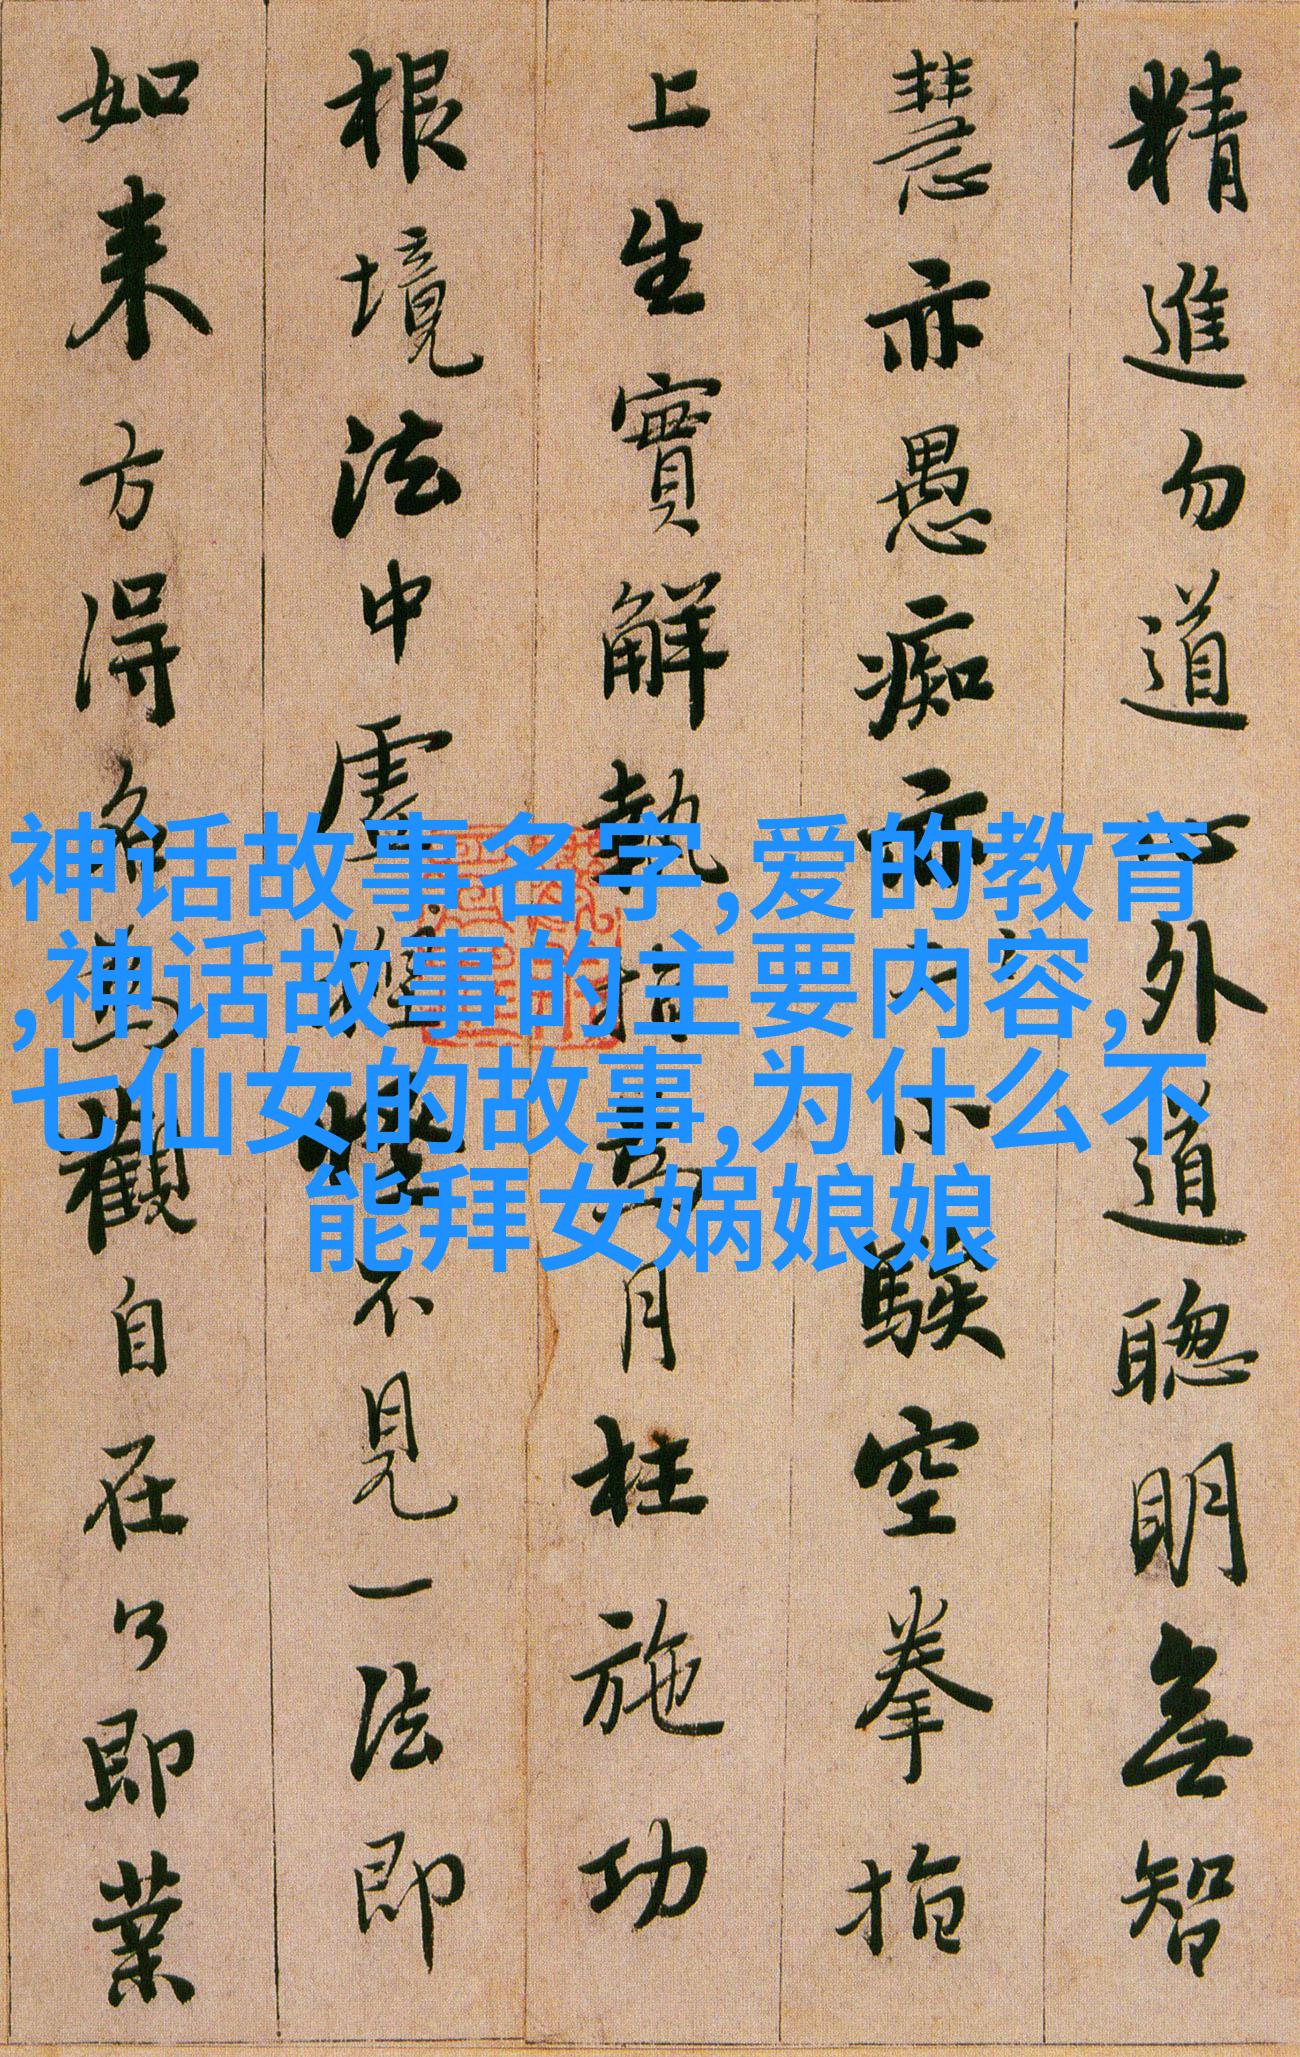 精進勿道心外道聰明無智
慧亦愚癡亦小騃空拳指
上生實解執指為月枉施功
根境法中虛捏怪不見一法即
如來方得名為觀自在了即業
神话故事名字,爱的教育
,神话故事的主要内容,
七仙女的故事,为什么不
能拜女娲娘娘